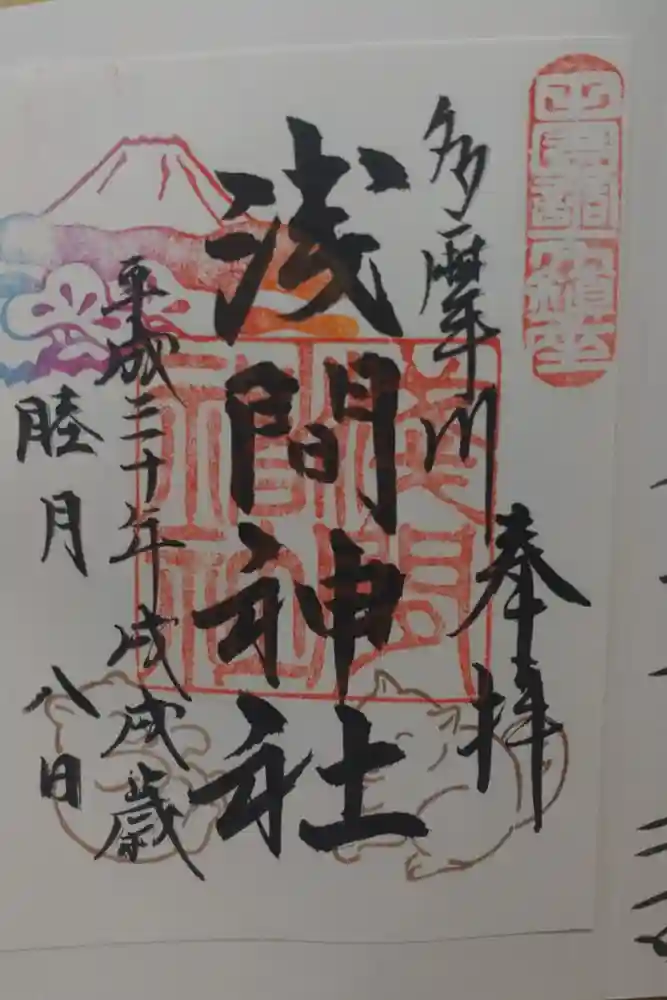 多摩川
奉拝
浅間神社
平成三十年戊戌歳
睦月
八日
浅間神社